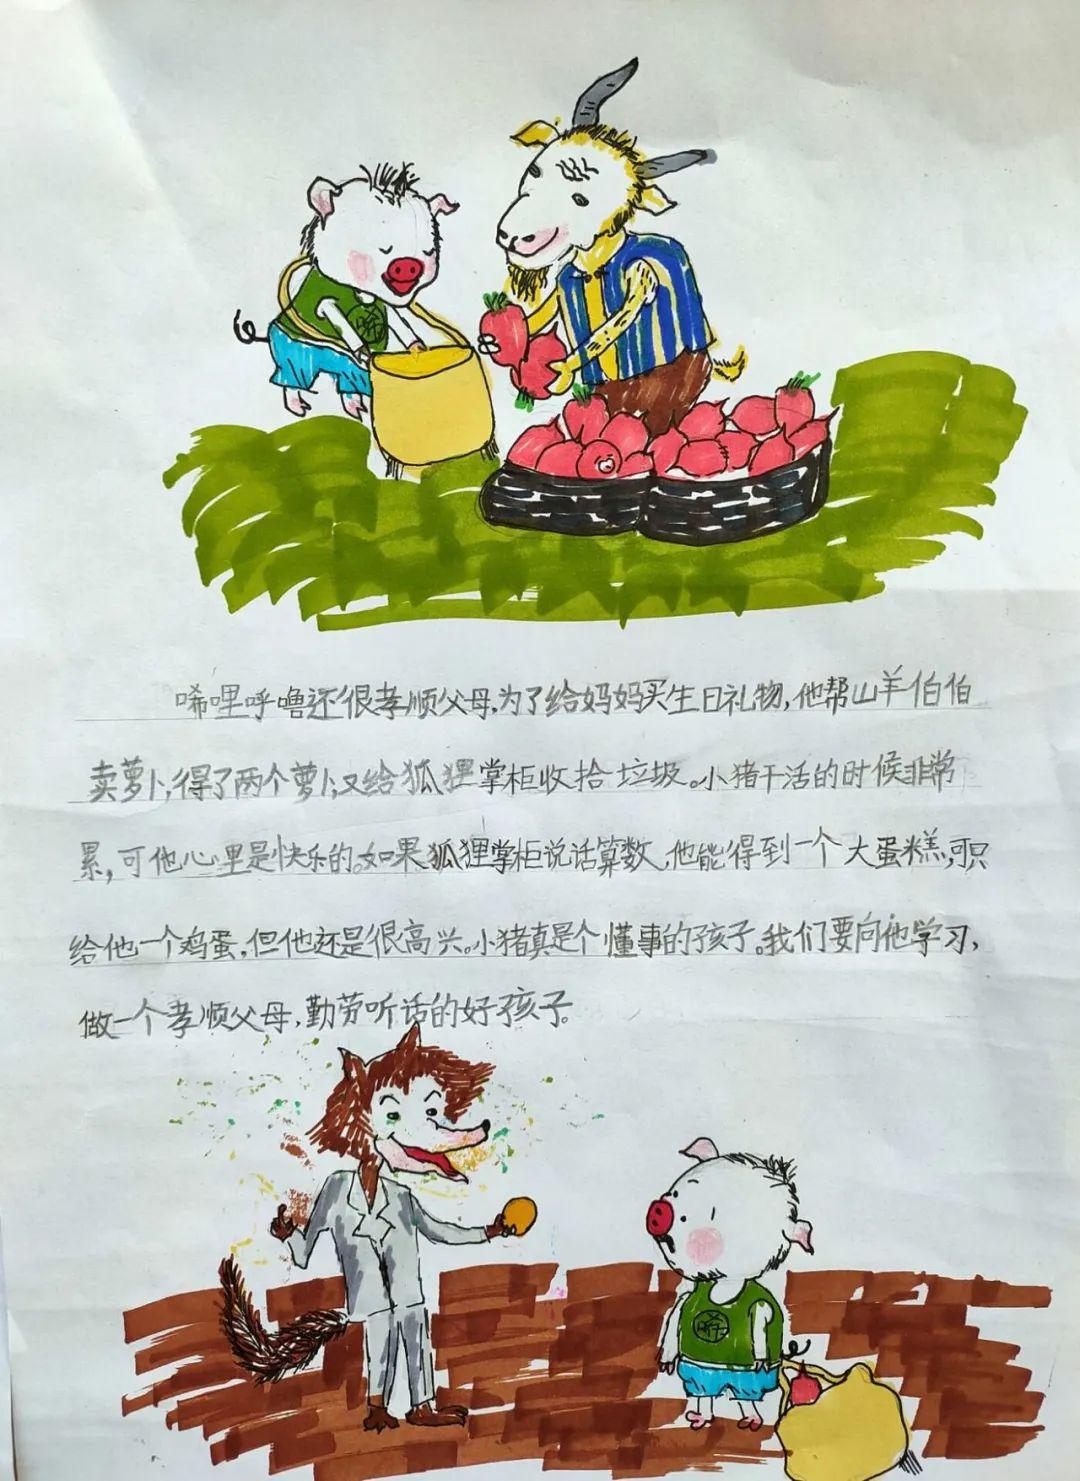 唏哩呼噜还很孝顺父母,为了给妈妈买生日礼物,他帮山羊伯伯
卖萝卜,得了两个萝卜,又给狐狸掌柜收拾垃圾。小猪干活的时候非常
累,可他心里是快乐的。如果狐狸掌柜说话算数,他能得到一个大蛋糕,可只
给他一个鸡蛋,但他还是很高兴。小猪真是个懂事的孩子。我们要向他学习,
做一个孝顺父母,勤劳听话的好孩子。